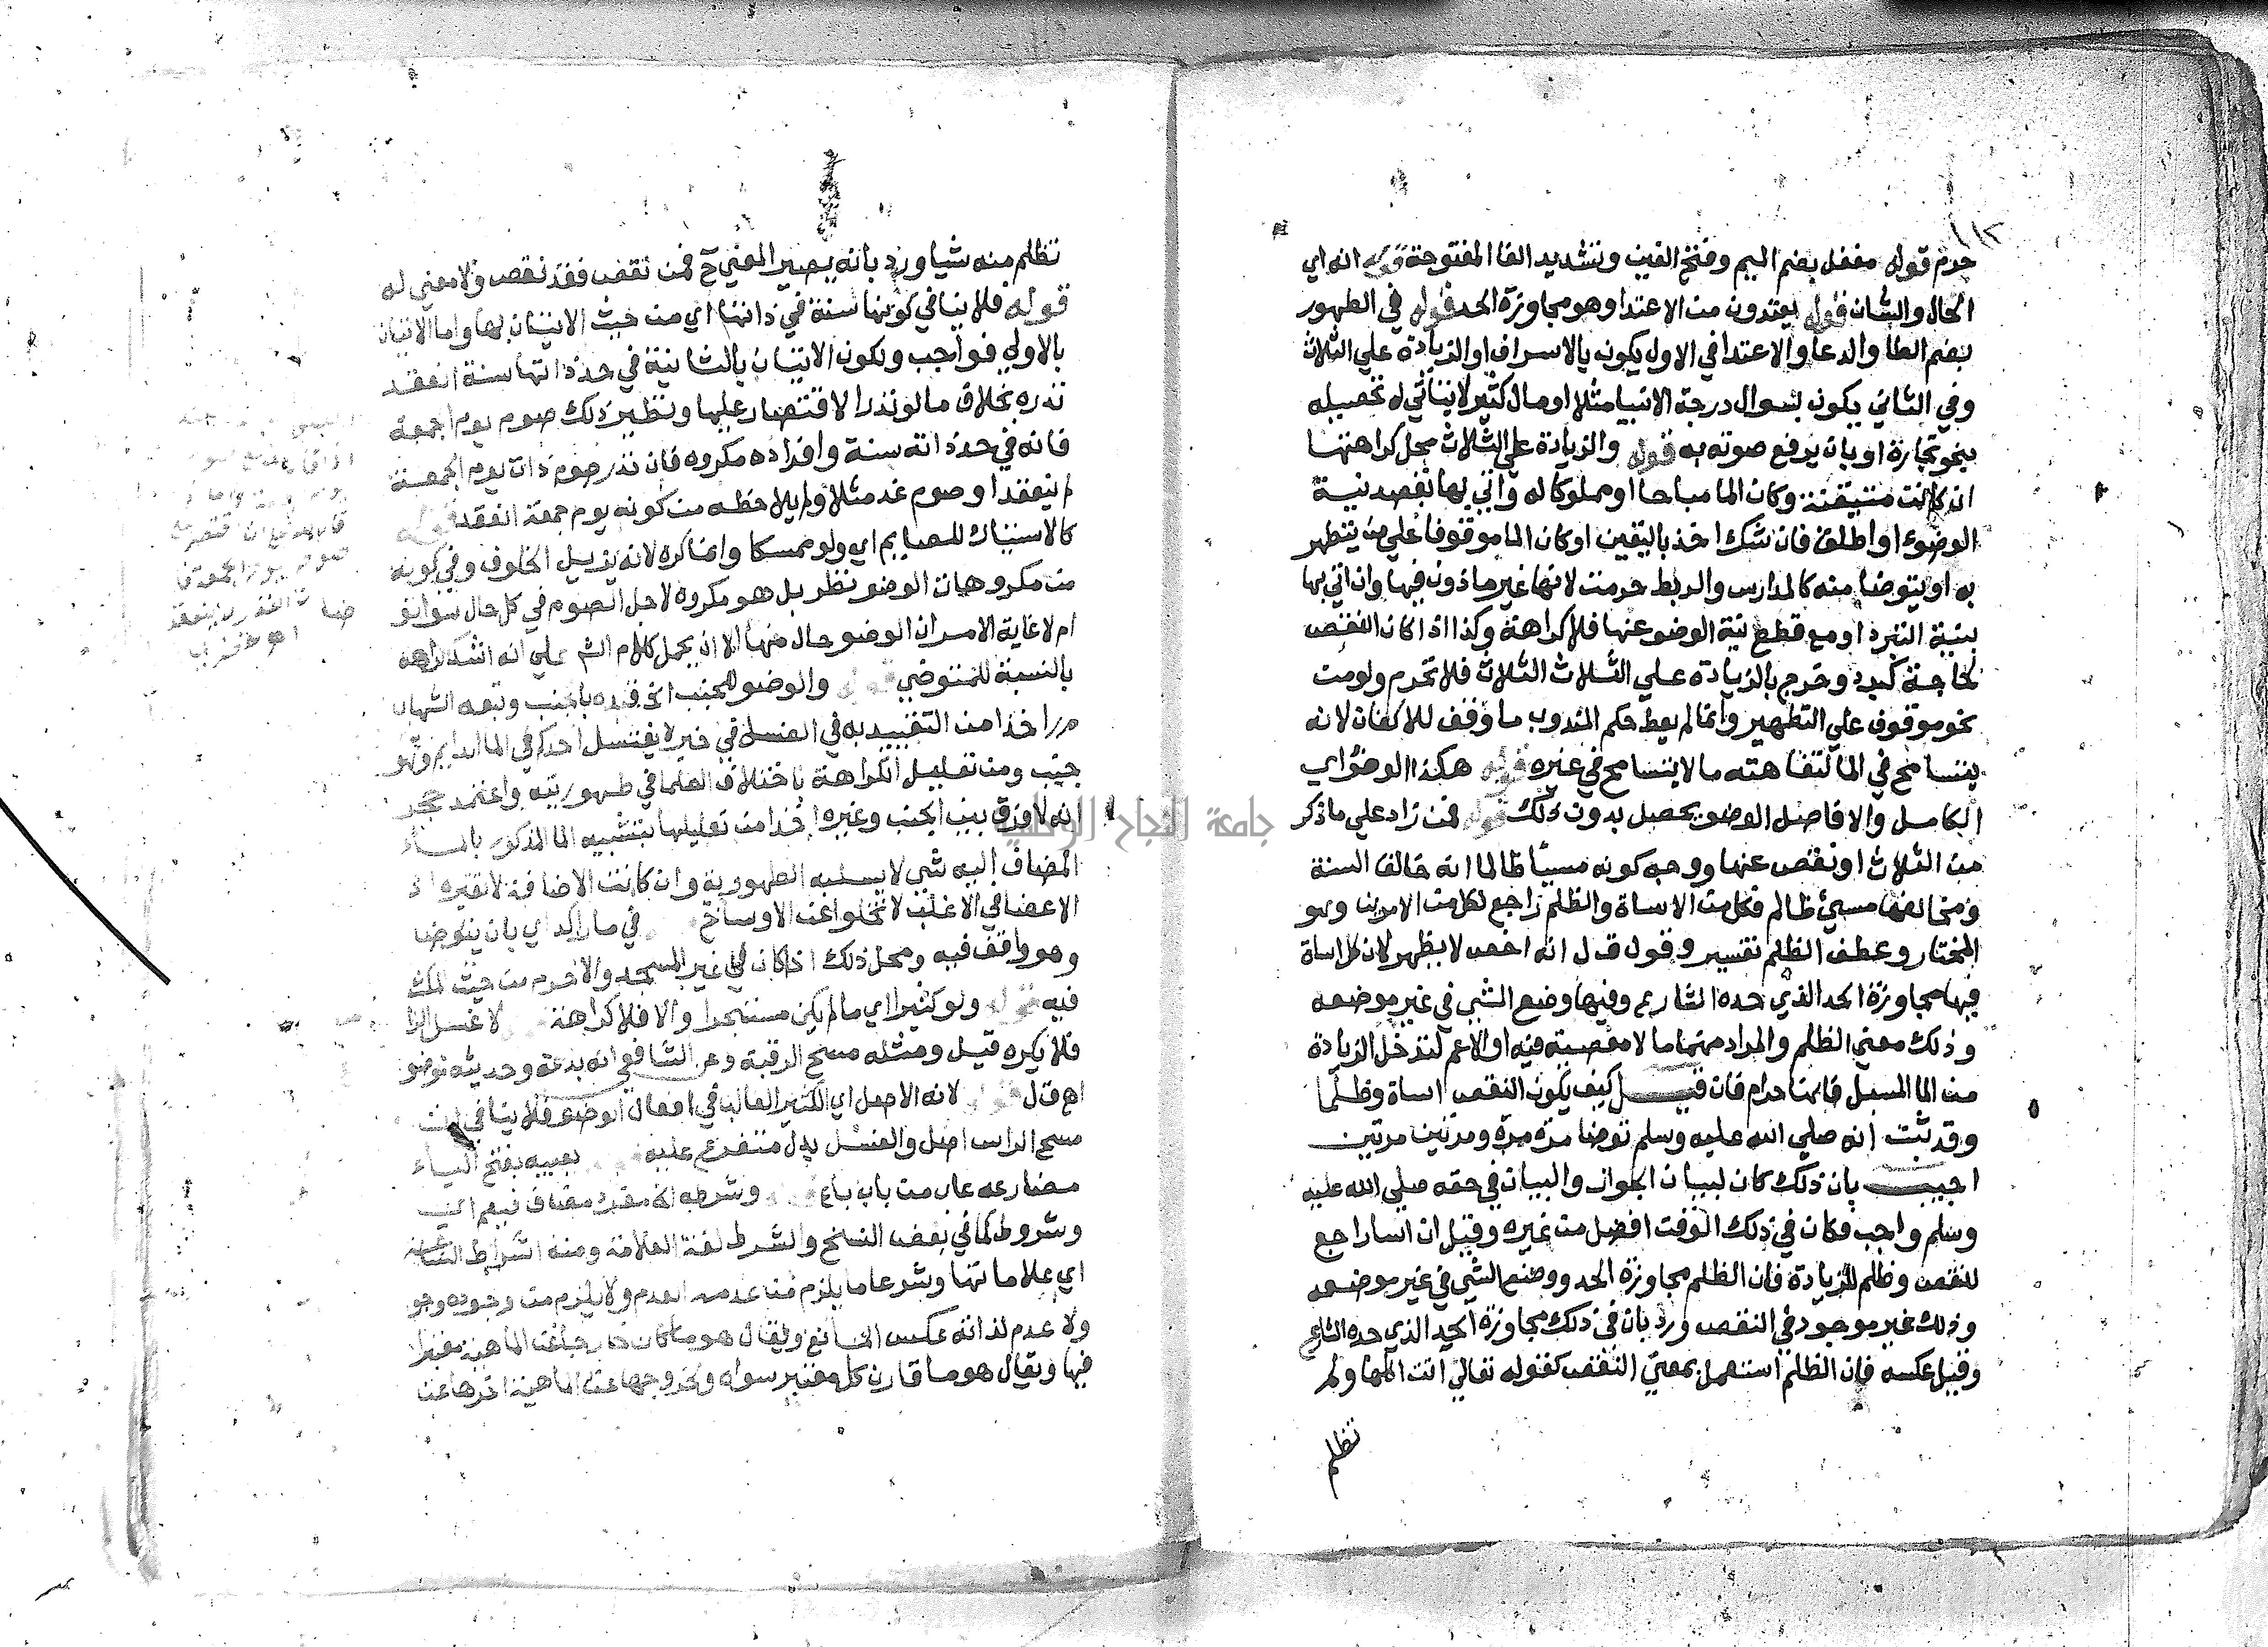 ١١٣
حرم قوله مغفل بضم الميم وفتح الغين وتشديد الفا المفتوحة قوله انه اي
الحال والشان قوله يعتدون من الاعتدا وهو مجاوزة الحد قوله في الطهور
بضم الطا والدعا والاعتدا في الاول يكون بالاسراف او الزيادة علي الثلاث
وفي الثاني يكون بسوال درجة الانبيا مثلا او مال كثير لا يتاتي له تحصيله
بنحو تجارة او بان يرفع صوته به قوله والزيادة علي الثلاث محل كراهتها
ان كانت متيقنة وكان الما مباحا او مملوكا له واتي بها بقصد نية
الوضوء او اطلق فان شك اخذ باليقين او كان الما موقوفا علي من يتطهر
به او يتوضا منه كالمدارس والربط حرمت لانها غير ماذون فيها وان اتي بها
بنية التبرد او مع قطع نية الوضو عنها فلا كراهة وكذا اذا كان النقص
لحاجة كبرد وخرج بالزيادة علي الثلاث الثلاث فلا تحرم ولو من
نحو موقوف علي التطهير وانما لم يعط حكم المندوب ما وقف للاكفان لانه
يتسامح في الما لتفاهته ما لا يتسامح في غيره قوله هكذا الوضؤ اي
الكامل والا فاصل الوضو يحصل بدون ذلك قوله فمن زاد علي ما ذكر
من الثلاث او نقص عنها ووجه كونه مسيأ ظالما انه خالف السنة
ومخالفها مسيئ ظالم فكل من الاساة والظلم راجع لكل من الامرين وهو
المختار وعطف الظلم تفسير وقول ق ل انه اخص لا يظهر لان كل اساة
فيها مجاوزة الحد الذي حده الشارع وفيها وضع الشي في غير موضعه
وذلك معني الظلم والمراد منهما ما لا معصية فيه او الاعم لتدخل الزيادة
من الما المسبل فانها حرام فان قيل كيف يكون النقص اساة وظلما
وقد ثبت انه صلي الله عليه وسلم توضا مرة مرة ومرتين مرتين
اجيب بان ذلك كان لبيان الجواز والبيان في حقه صلي الله عليه
وسلم واجب فكان في ذلك الوقت افضل من غيره وقيل ان اسا راجع
للنقص وظلم للزيادة فان الظلم مجاوزة الحد ووضع الشي في غير موضعه
وذلك غير موجود في النقص ورد بان في ذلك مجاوزة الحد الذي حده الشارع
وقيل عكسه فان الظلم استعمل بمعني النقص كقوله تعالي اتت اكلها ولم
تظلم
تظلم منه شيا ورد بانه يصير المعني ح فمن نقص فقد نقص ولا معني له
قوله فلا ينافي كونها سنة في ذاتها اي من حيث الاتيان بها واما الاتيان
بالاولي فواجب ويكون الاتيان بالثانية في حد ذاتها سنة انعقد
نذره بخلاف ما لو نذر الاقتصار عليها ونظير ذلك صوم يوم الجمعة
فانه في حد ذاته سنة وافراده مكروه فان نذر صوم ذات يوم الجمعة
لم ينعقد او صوم غد مثلا ولم يلاحظه من كونه يوم جمعة انعقد قوله
كالاستياك للصايم اي ولو ممسكا وانما كره لانه يزيل الخلوف وفي كونه
من مكروهات الوضو نظر بل هو مكروه لاجل الصوم في كل حال سوا توضا
ام لا غاية الامر ان الوضو حال منها الا ان يحمل كلام الش علي انه اشد كراهة
بالنسبة للمتوضي قوله والوضو للجنب الخ قيده بالجنب وتبعه الشهاب
م ر اخذا من التقييد به في الغسل في خبر لا يغتسل احدكم في الما الدايم وهو
جنب ومن تعليل الكراهة باختلاف العلما في طهوريته واعتمد حجر
انه لا فرق بين الجنب وغيره اخذا من تعليلها بتشبيه الما المذكور بالماء
المضاف اليه شي لا يسلبه الطهورية وان كانت الاضافة لا تغيره اذ
الاعضا في الاغلب لا تخلوا عن الاوساخ في ما راكد اي بان يتوضا
وهو واقف فيه ومحل ذلك اذا كان في غير المسجد والا حرم من حيث المكث
فيه قوله ولو كثيرا اي ما لم يكن مستبحرا والا فلا كراهة لا غسل الرا
فلا يكره قيل ومثله مسح الرقبة وعن الشافعي انه بدعة وحديثه موضو
اه ق ل قوله لانه الاصل اي الكثير الغالب في افعال الوضو فلا ينافي ان
مسح الراس اصل والغسل بدل متفرع عليه يعيبه بفتح الياء
مضارعه عاب من باب باع قوله وشرطه الخ مفرد مضاف فيعم اي
وشروط كما في بعض النسخ والشرط لغة العلامة ومنه اشراط الساعة
اي علاماتها وشرعا ما يلزم من عدمه العدم ولا يلزم من وجوده وجو
ولا عدم لذاته عكس المانع ويقال هو ما كان خارجا عن الماهية معتبرا
فيها ويقال هو ما قارن كل معتبر سواه ولخروجها عن الماهية اخرها عن